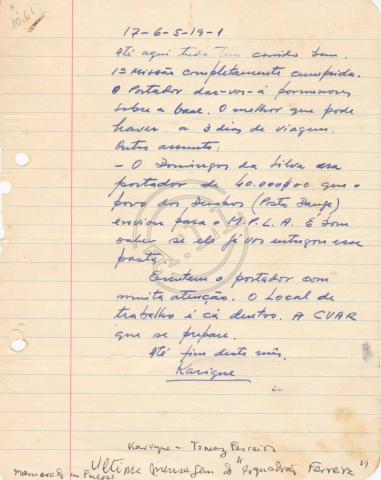 10.61
17-6-5-19-1
Até aqui tudo tem corrido bem.
1ª Missão completamente cumprida.
O Portador dar-vos-á pormenores
sobre a base. O melhor que pode
haver a 3 dias de viagem.
Outro assunto.
- O Domingos da Silva era
portador de 40.000$00 que o
povo dos Dembos (Posto Dange)
enviou para o M.P.L.A. É bom
saber se ele já vos entregou essa
pasta.
Escutem o portador com
muita atenção. O Local de
trabalho é cá dentro. A CVAR
que se prepare.
Até fim deste mês.
Karique
Karique - Tomaz Ferreira
Ultima mensagem do "esquadrão Ferreira"